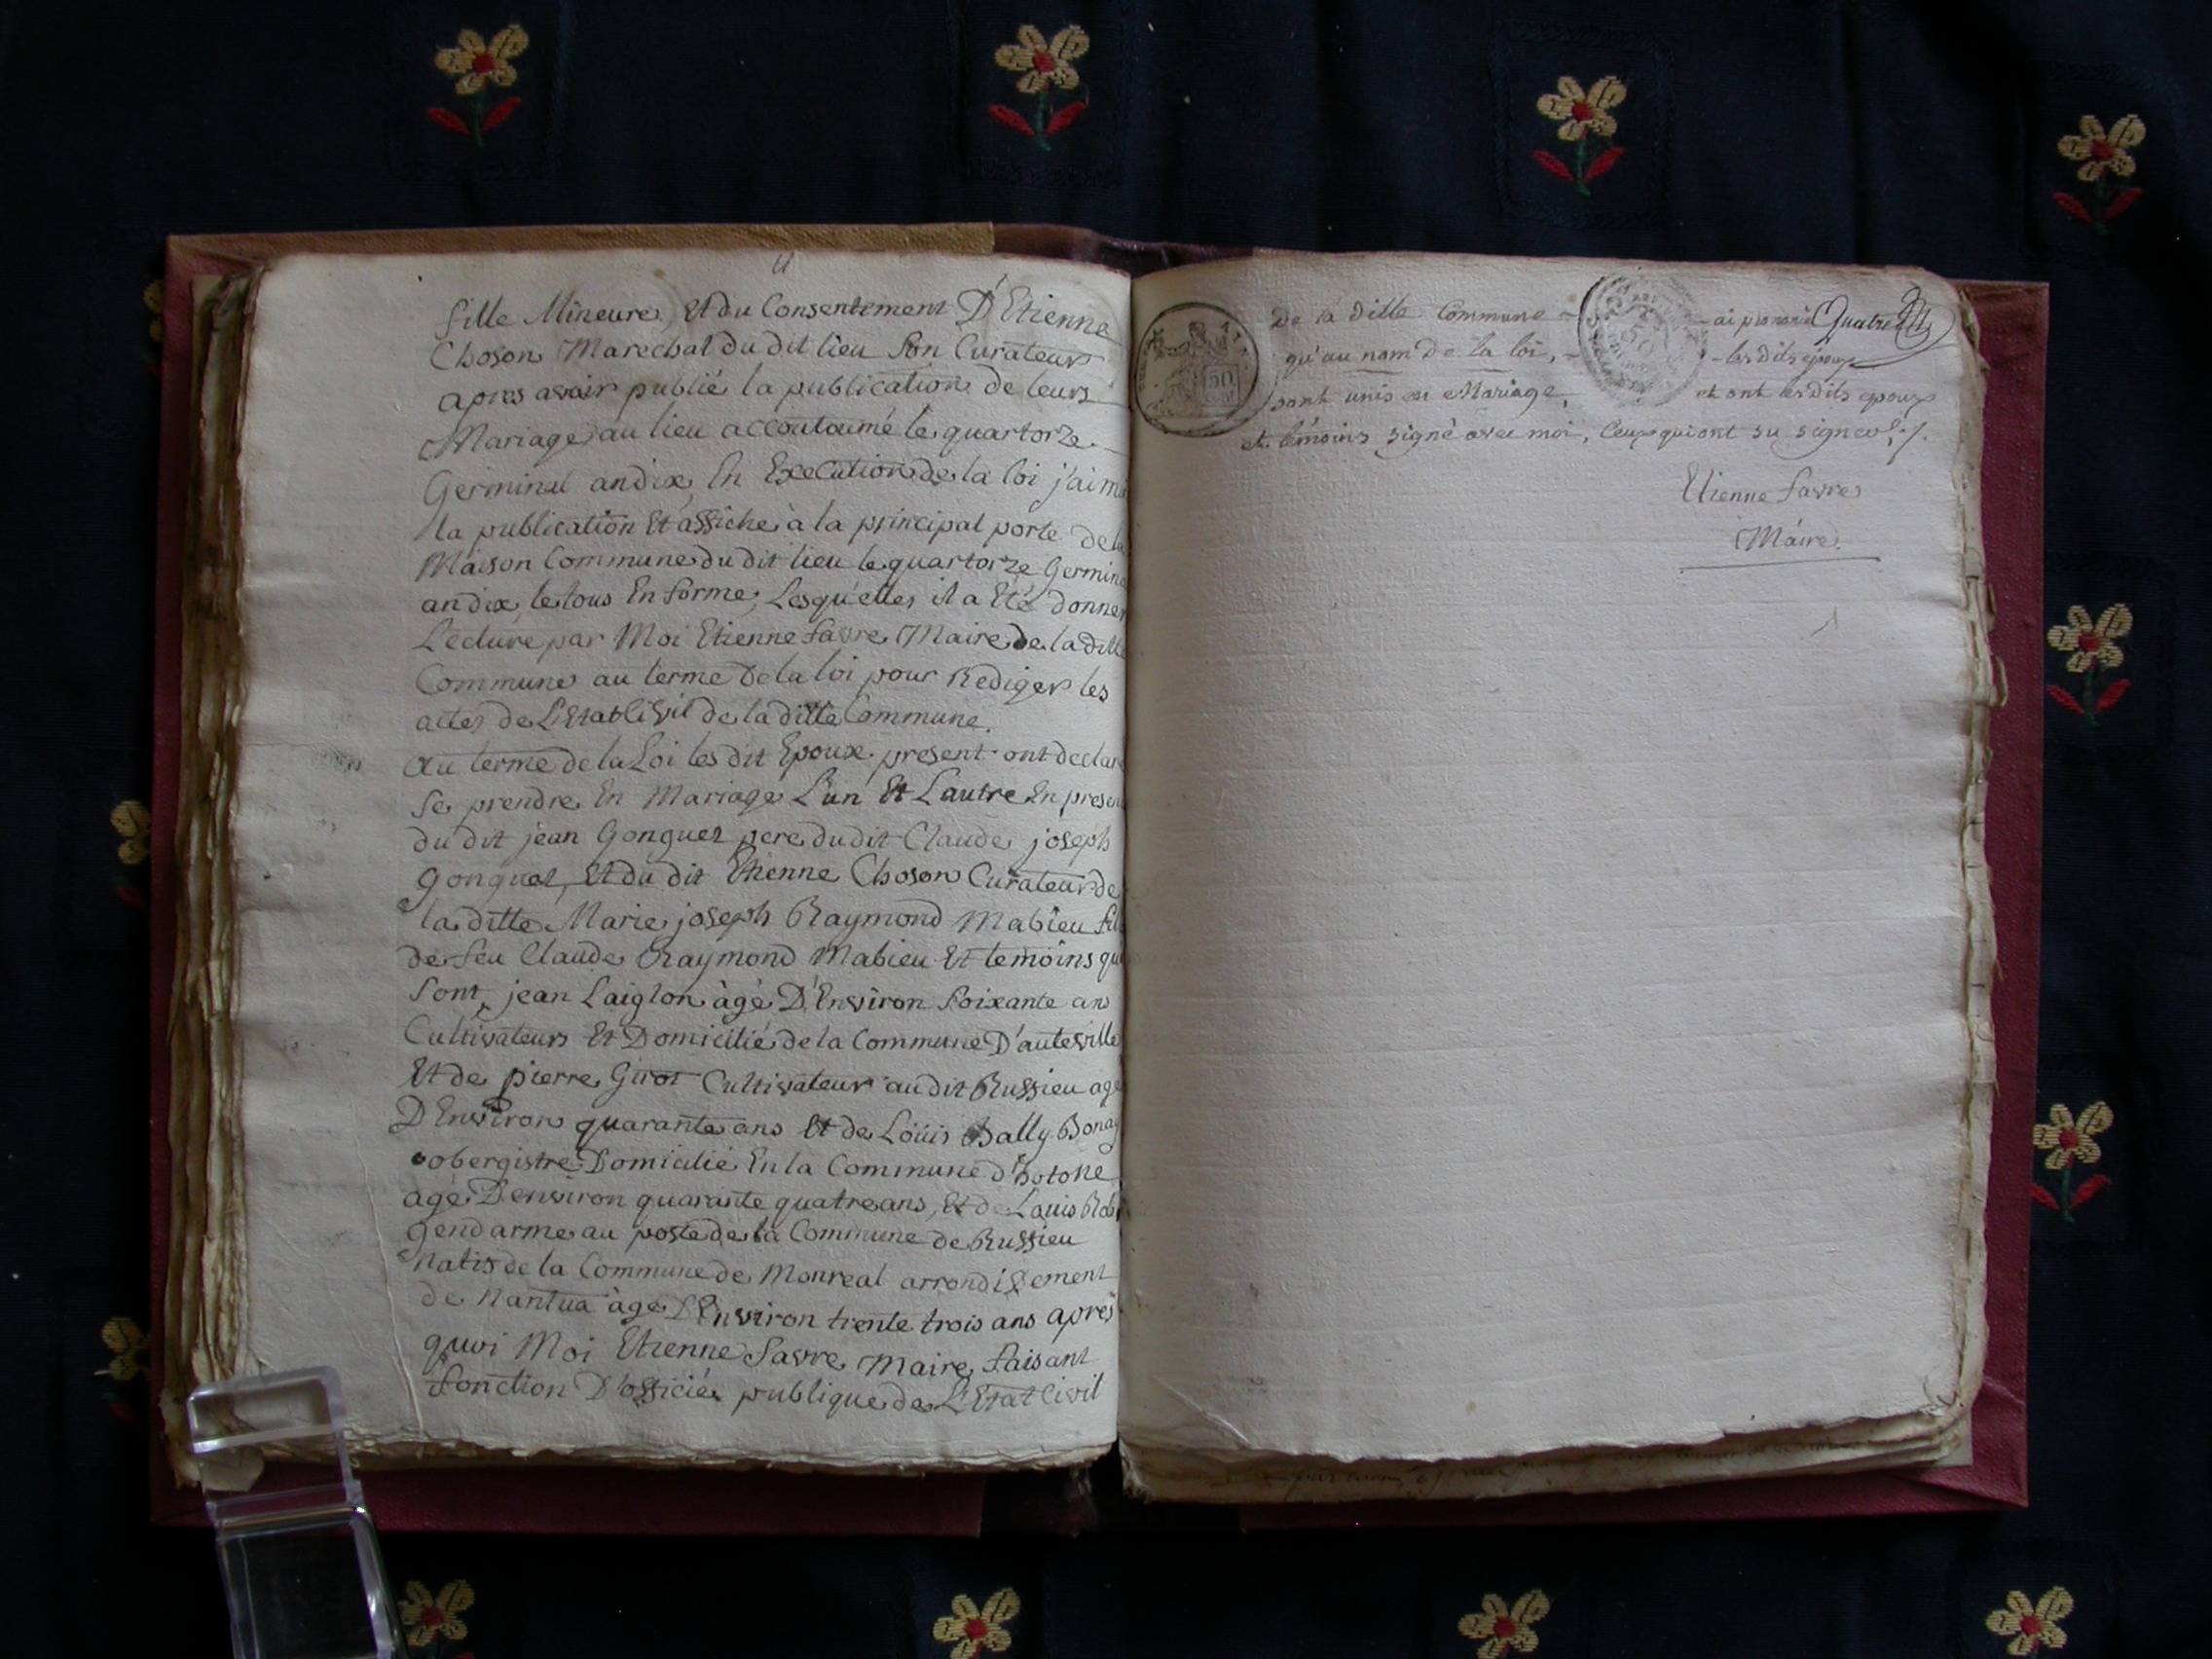 fille Mineure, Et du Consentement D'Etienne
Choson Marechal du dit lieu Son Curateur
apres avoir publié la publication de leurs
Mariage au lieu accoutoumé le quartorze
Germinal an dix, En Execution de la loi j'ai mi
la publication Et affiche à la principal porte de la
Maison Commune du dit lieu le quartorze Germina
an dix, le tous En forme, Lesqu'elles il a Eté donner
Lecture par Moi Etienne favre Maire de la ditte
Commune au terme de la loi pour Rediger les
actes de L'Etat Civil de la ditte Commune.
Au terme de la Loi les dit Epoux present ont declar
Se prendre En Mariage L'un Et Lautre En presen
du dit jean Gonguet pere du dit Claude joseph
gonguet, Et du dit Etienne Choson Curateur de
la ditte Marie joseph Raymond Mabieu fil
de feu Claude Raymond Mabieu Et temoins qu
Sont, jean Laiglon àgé D'Environ Soixante ans
Cultivateurs Et Domicilié de la Commune D'auteville
Et de pierre Girot Cultivateur au dit Russieu age
D'Environ quarante ans Et de Loüis Bally Bonaz
obergistre Domicilié En la Commune d'hotone
agé Denviron quarante quatre ans, Et de Louis Rob
gendarme au poste de la Commune de Russieu
Natis de la Commune de Monreal arrondissement
de Nantua àge D'Environ trente trois ans apres
quoi Moi Etienne favre Maire, faisant
fonction D'officié publique de L'Etat Civil
De la ditte Commune ai prononcé Quatre
50
qu'au nom de la loi, les dits epoux
sont unis en Mariage, et ont les dits epoux
et témoins signé avec moi, Ceux qui ont su signer
Etienne favre
Maire